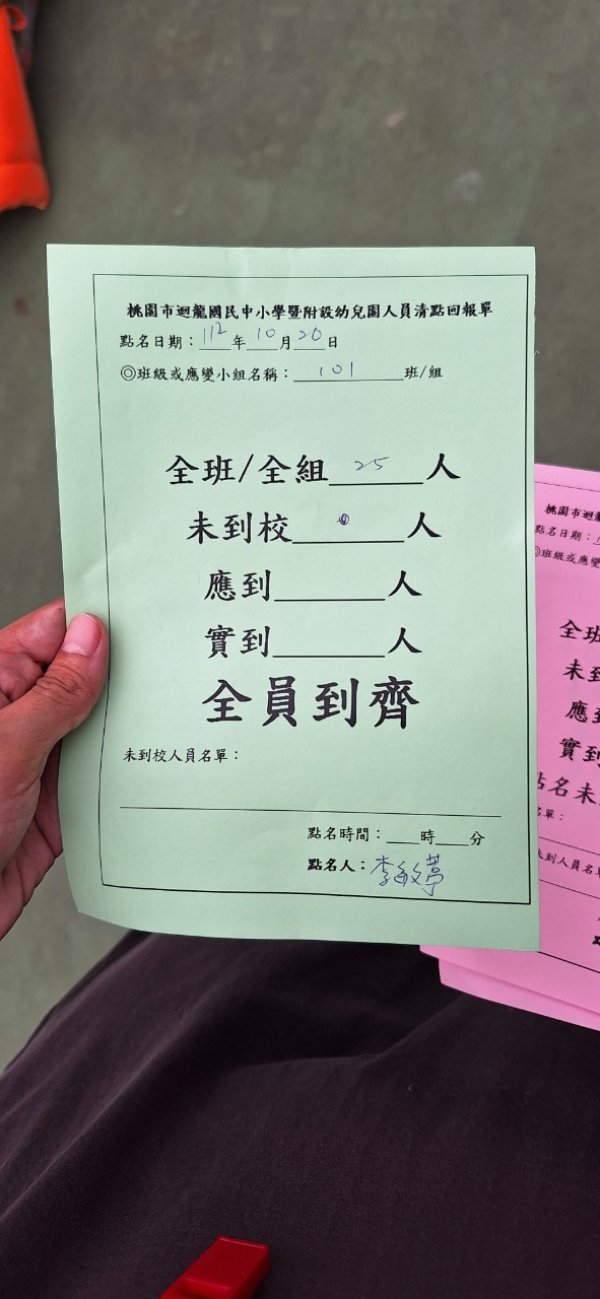 桃園市迴龍國民中小學暨附設幼兒園人員清點回報單
點名日期：112年10月20日
◎班級或應變小組名稱：101班/組
全班/全組25人
未到校0人
應到____人
實到____人
全員到齊
未到校人員名單：
點名時間：___時___分
點名人：李敏葶
桃園市迴
點名日期：
◎班級或應變
全班
未到
應到
實到
點名未
名單：
未到人員名單